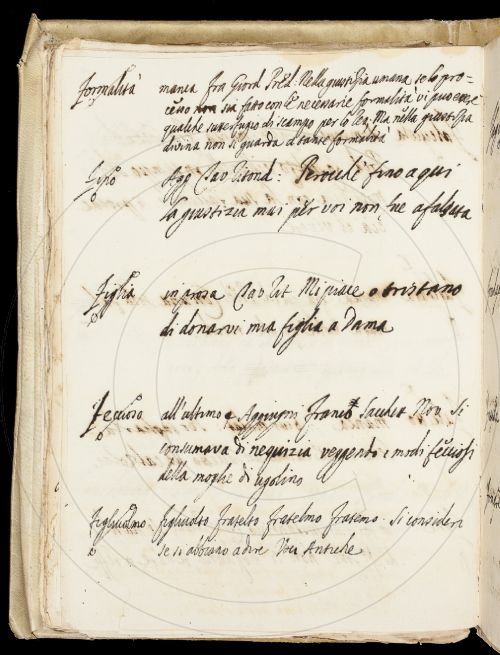 formalità manca fra Giord Pred: Nella giustizia umana se lo pro=
cesso non sia fatto con le necessarie formalità vi può essere
qualche sutterfugio di scampo per lo reo. Ma nella giustizia
divina non si guarda a tante formalità
Fino Agg Tav Ritond: Perochè fino a qui
la giustizia mai per voi non fue afalsata
Figlia in prosa Tav Rit Mi piace o tristano
di donarvi mia figlia a Dama
Feccioso all'ultimo e Aggiugni Franco Sacchet Nov Si
consumava di nequizia veggendo i modi fecciosi
della moglie di ugolino
Figliuolmo figliuolto fratelto fratelmo fratemo. Si consideri
se si abbiano a dire Voci Antiche